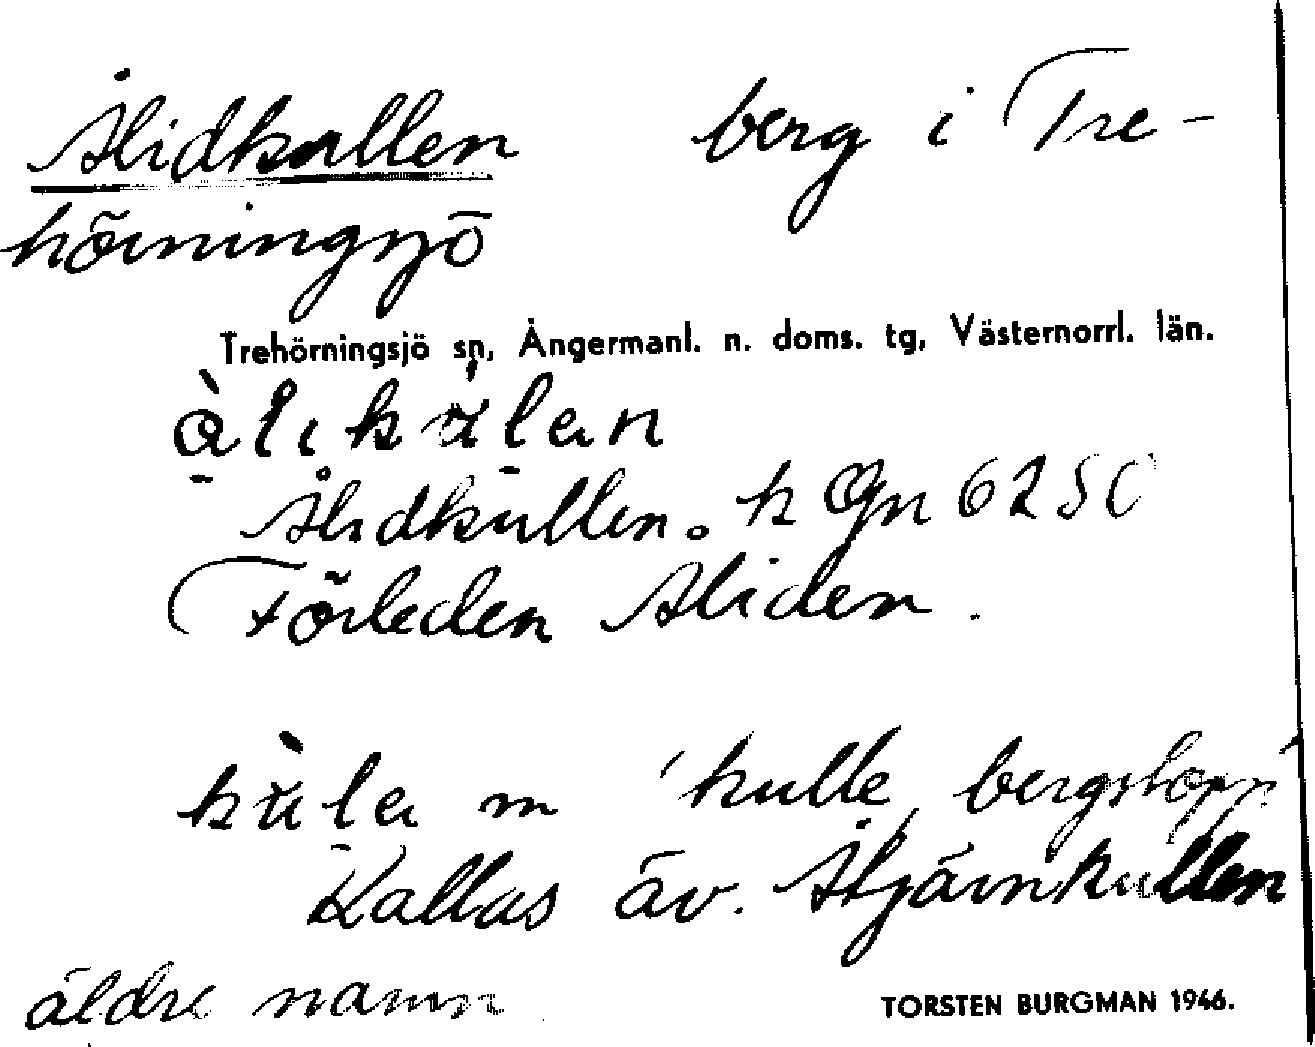 Ålidkullen berg i Tre-
hörningsjö
Trehörningsjö sn, Ångermanl. n. doms. tg, Västernorrl. län.
Ålidkullen. k Gn 6250
Förleden Åliden.
kula m 'kulle, bergstopp'
Kallas äv. Åtjärnkullen
äldre namn
TORSTEN BURGMAN 1946.